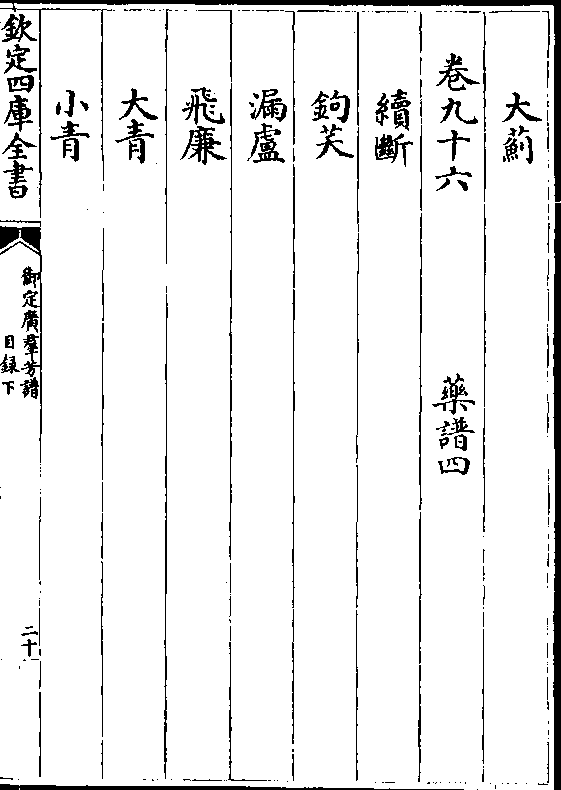 大薊
卷九十六 藥譜四
續斷
鉤芺
漏盧
飛廉
大青
小青
欽定四庫全書
御定廣羣芳譜
目録下
二十